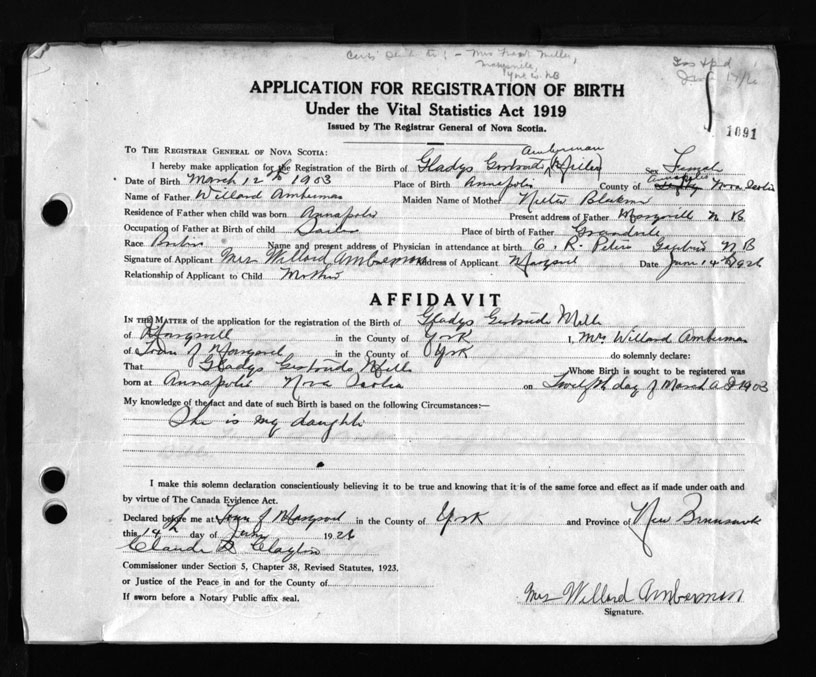 Mrs Frank Miller,
Marysville,
York Co. NB
APPLICATION FOR REGISTRATION OF BIRTH
Under the Vital Statistics Act 1919
Issued by The Registrar General of Nova Scotia.
1091
Amberman
TO THE REGISTRAR GENERAL OF NOVA SCOTIA:
I hereby make application for the Registration of the Birth of Gladys Gertrude Sex Female
Date of Birth March 12th 1903 Place of Birth Annapolis County of Nova Scotia
Name of Father Willard Amberman Maiden Name of Mother
Residence of Father when child was born Annapolis Present address of Father Marysville N B
Occupation of Father at Birth of child Sailor Place of birth of Father Granville
Race Name and present address of Physician in attendance at birth C. R. Peters N B
Signature of Applicant Mrs Willard Amberman Address of Applicant Date 14th 1926
Relationship of Applicant to Child Mother
AFFIDAVIT
IN THE MATTER of the application for the registration of the Birth of Gladys Gertrude
of Marysvill in the County of York I, Mrs Willard Amberman
of Town of in the County of York do solemnly declare:
That Gladys Gertrude Whose Birth is sought to be registered was
born at Annapolis Nova Scotia on Twelfth day of March A D 1903
My knowledge of the fact and date of such Birth is based on the following Circumstances:—
She is my daughter
I make this solemn declaration conscientiously believing it to be true and knowing that it is of the same force and effect as if made under oath and
by virtue of The Canada Evidence Act.
Declared before me at Town of in the County of York and Province of New Brunswick
this 14th day of 1926
Claude D Clayton
Commissioner under Section 5, Chapter 38, Revised Statutes, 1923.
or Justice of the Peace in and for the County of
If sworn before a Notary Public affix seal.
Mrs Willard Amberman
Signature.